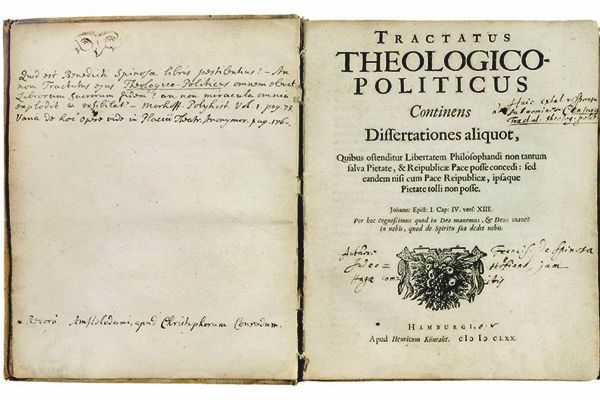 Quid est Benedicti Spinosæ libris pestilentius? - An
non Tractatus ejus Theologico-Politicus omnem elevat
Librorum sacrorum fidem? an non miracula omnia
explodit & exsibilat? - Morhoff. Polyhist. Vol. 1. pag. 73
Varia de hoc opere vide in Placcii Theatr. Anonymor. pag. 176.
Revera Amstelodami, apud Christophorum Conradum.
TRACTATUS
THEOLOGICO-
POLITICUS
Continens
Dissertationes aliquot,
Huic extat
Tractat. theolog. polit.
Quibus ostenditur Libertatem Philosophandi non tantum
salva Pietate, & Reipublicæ Pace posse concedi: sed
eandem nisi cum Pace Reipublicæ, ipsaque
Pietate tolli non posse.
Johann: Epist: I. Cap: IV. vers: XIII.
Per hoc cognoscimus quod in Deo manemus, & Deus manet
in nobis, quod de Spiritu suo dedit nobis.
Authore de Spinosa
Judeo jam
Hagæ
HAMBURGI,
Apud Henricum Künraht. cIɔ Iɔ cLXX.